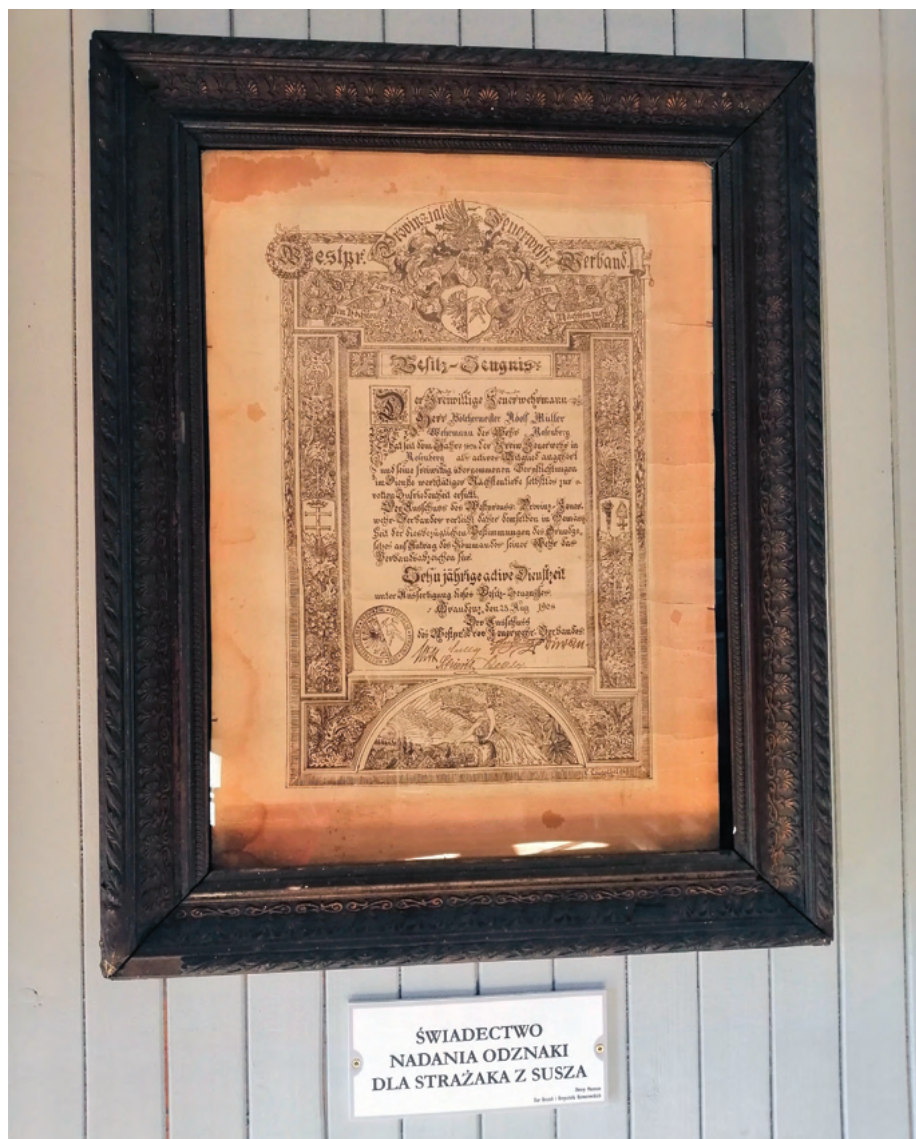 Westpr. Provinzial Feuerwehr Verband.
Besitz-Zeugnis
Der Freiwillige Feuerwehrmann
Herr Böttchermeister Adolf Müller
Wehrmann der Wehr Rosenberg
hat seit dem Jahre der Freiw. Feuerwehr in
Rosenberg als actives Mitglied angehört
und seine freiwillig übernommenen Verpflichtungen
im Dienste werkthätiger Nächstenliebe selbstlos zur
vollen Zufriedenheit erfüllt.
Der Ausschuss des Westpreuss. Provinz. Feuer-
wehr-Verbandes verleiht daher demselben in Gemäss-
heit der diesbezüglichen Bestimmungen des Grundge-
setzes auf Antrag des Kommandos seiner Wehr das
Verbandsabzeichen für
Zehnjährige active Dienstzeit
unter Ausfertigung dieses Besitz-Zeugnisses.
Graudenz, den 23. Aug. 1908
Der Ausschuss
des Westpr. Prov. Feuerwehr-Verbandes:
ŚWIADECTWO
NADANIA ODZNAKI
DLA STRAŻAKA Z SUSZA